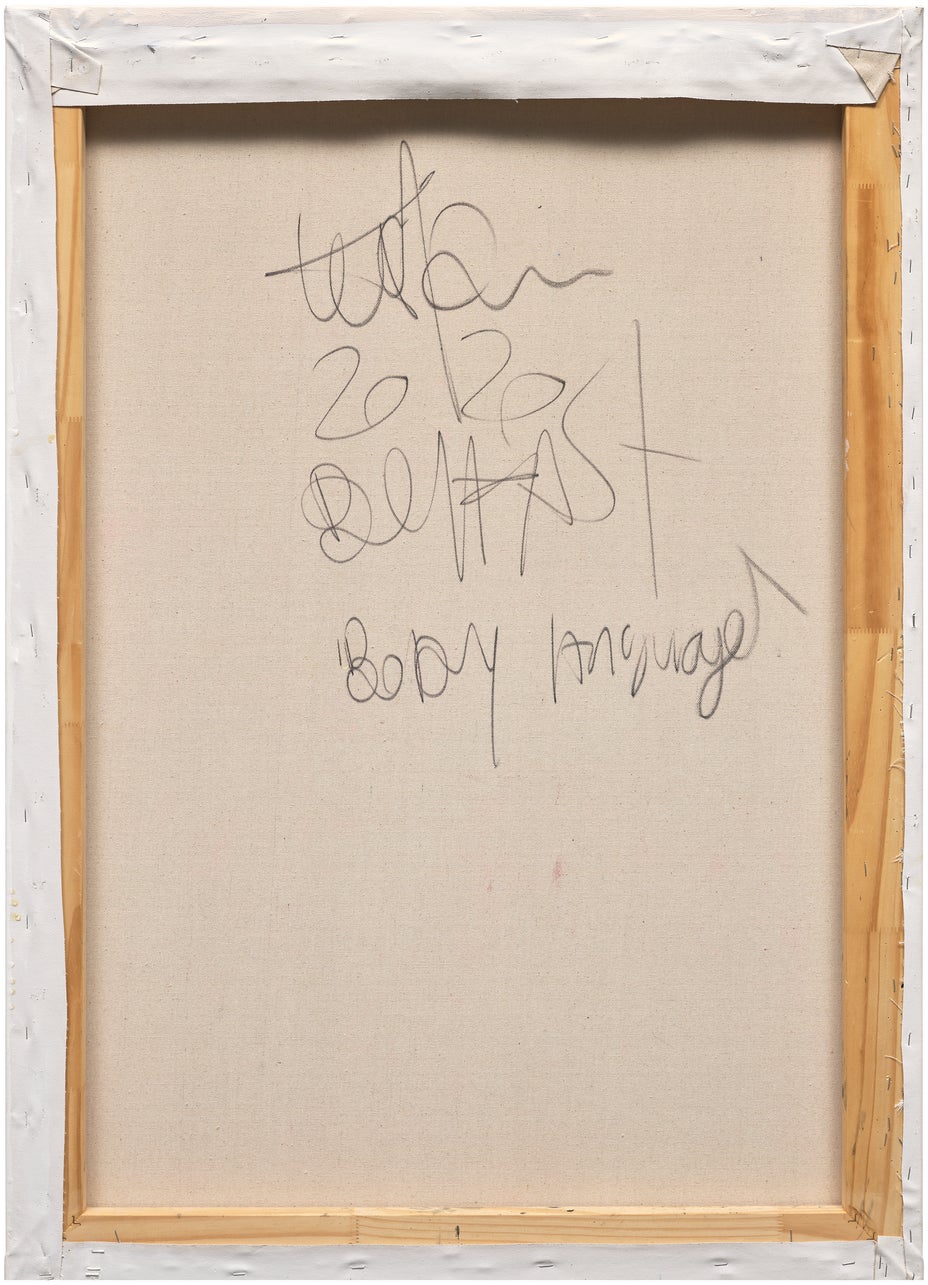 2020
BelfAST
"BODy lAnguage"